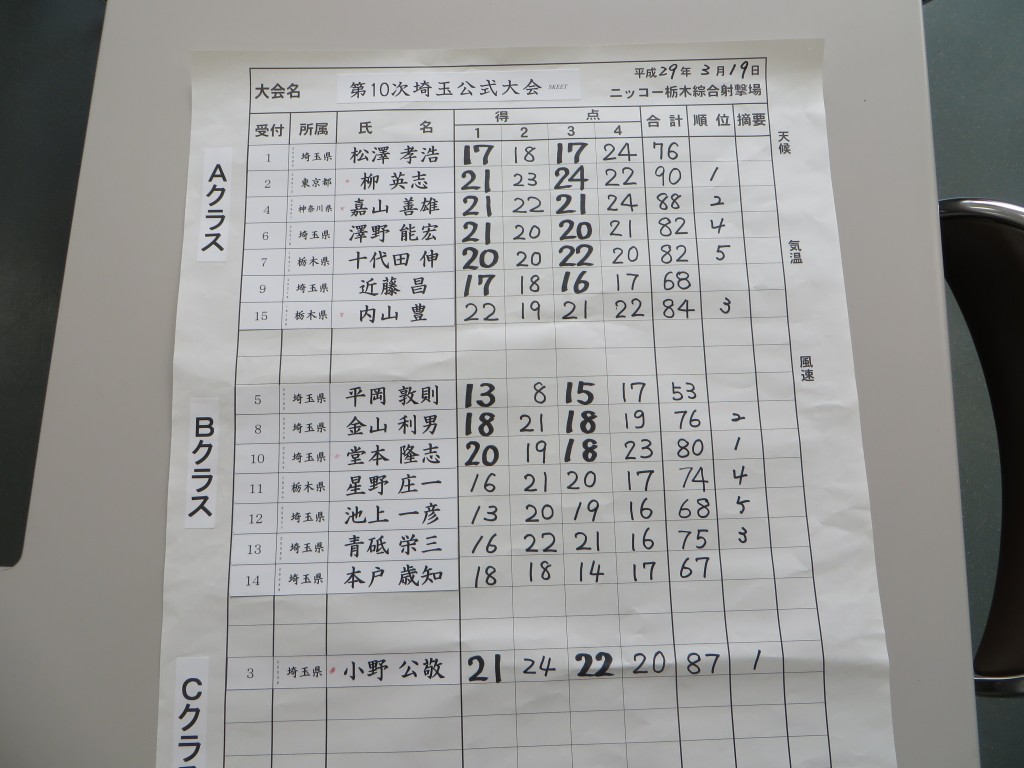 平成29年 3月19日
大会名 第10次埼玉公式大会 SKEET ニッコー栃木綜合射撃場
受付 所属 氏 名 得 点 合計 順位 摘要
1 2 3 4
天候
Aクラス
1 埼玉県 松澤 孝浩 17 18 17 24 76
2 東京都 柳 英志 21 23 24 22 90 1
4 神奈川県 嘉山 善雄 21 22 21 24 88 2
6 埼玉県 澤野 能宏 21 20 20 21 82 4
気温
7 栃木県 十代田 伸 20 20 22 20 82 5
9 埼玉県 近藤 昌 17 18 16 17 68
15 栃木県 内山 豊 22 19 21 22 84 3
風速
Bクラス
5 埼玉県 平岡 敦則 13 8 15 17 53
8 埼玉県 金山 利男 18 21 18 19 76 2
10 埼玉県 堂本 隆志 20 19 18 23 80 1
11 栃木県 星野 庄一 16 21 20 17 74 4
12 埼玉県 池上 一彦 13 20 19 16 68 5
13 埼玉県 青砥 栄三 16 22 21 16 75 3
14 埼玉県 本戸 歳知 18 18 14 17 67
Cクラ
3 埼玉県 小野 公敬 21 24 22 20 87 1